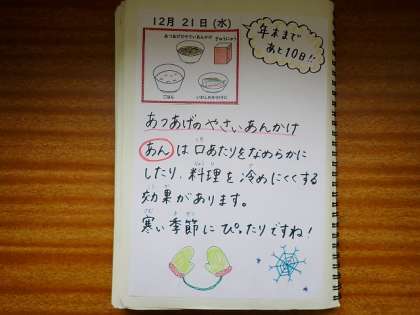 12月 21日 (水)
年末まで
あと10日!!
あつあげのやさいあんかけ
ぎゅうにゅう
ごはん
あつあげのやさいあんかけ
あんは口あたりをなめらかに
したり、料理を冷めにくくする
効果があります。
寒い季節にぴったりですね!